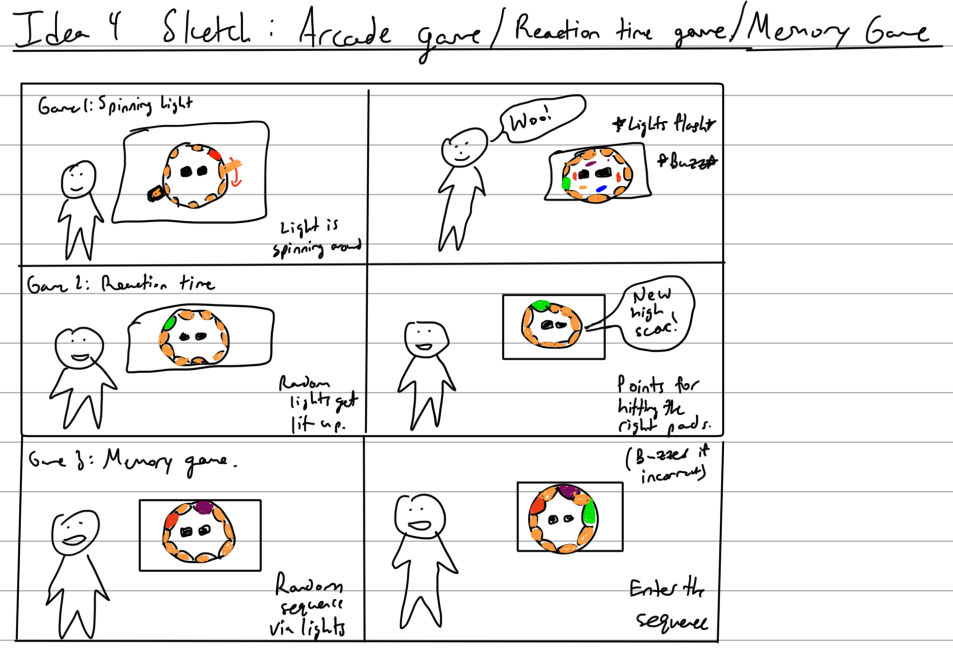 Idea 4 Sketch: Arcade game/Reaction time game/Memory Game
Game 1: Spinning Light
Light is
spinning around
Woo!
*Lights flash*
*Buzz*
Game 2: Reaction time
Random
lights get
lit up.
New
high
score!
Points for
hitting the
right pads.
(Buzzed if
incorrect)
Game 3: Memory game.
Random
sequence
via lights
Enter the
sequence